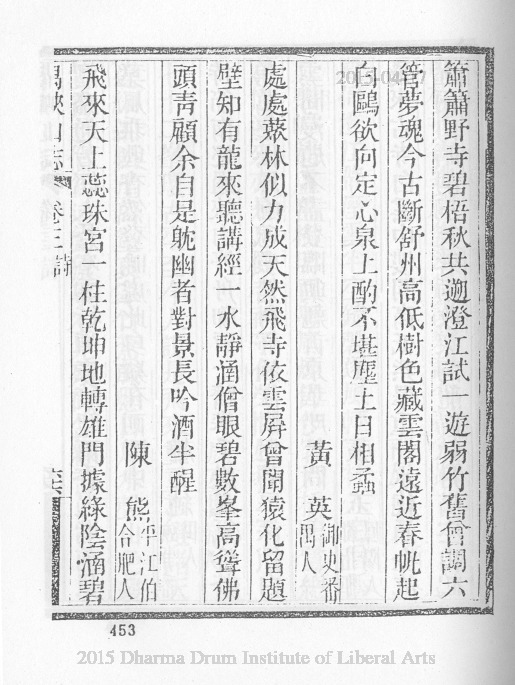 簫簫野寺碧梧秋共遡澄江試一遊弱竹舊曾調六
管夢魂今古斷舒州高低樹色藏雲閣遠近春帆起
白鷗欲向定心泉上酌不堪塵土日相蟊
黃英御史番禺人
處處叢林似力成天然飛寺依雲屏曾聞猿化留題
壁知有龍來聽講經一水靜涵僧眼碧數峯高聳佛
頭靑顧余自是躭幽者對景長吟酒半醒
陳熊平江伯合肥人
飛來天上蕊珠宮一柱乾坤地轉雄門據綠陰涵碧
禺峽山志
卷三
詩
453
2015 Dharma Drum Institute of Liberal Arts